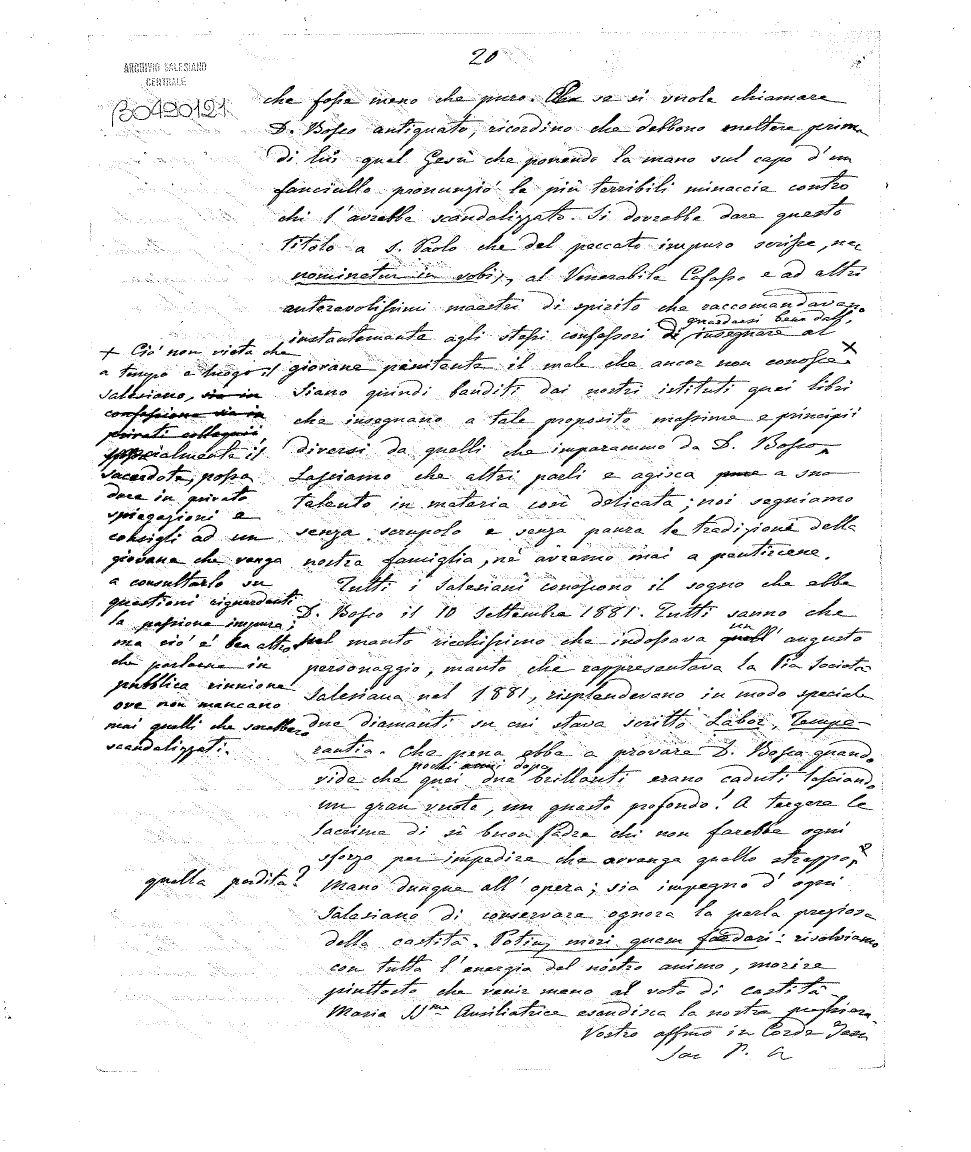 20
ARCHIVIO SALESIANO
CENTRALE
B0420121
che fosse meno che puro. Che se si vuole chiamare
D. Bosco antiquato, ricordino che debbono mettere prima
di lui quel Gesù che ponendo la mano sul capo d'un
fanciullo pronunziò le più terribili minaccie contro
chi l'avrebbe scandalizzato. Si dovrebbe dare questo
titolo a S. Paolo che del peccato impuro scrisse, nec
nominetur in vobis, al Venerabile Cafasso e ad altri
autorevolissimi maestri di spirito che raccomandavano
instantemente agli stessi confessori di guardarsi bene dall' insegnare al
giovane penitente il male che ancor non conosce. X
Siano quindi banditi dai nostri istituti quei libri
che insegnano a tale proposito massime e principii
diversi da quelli che imparammo da D. Bosco.
Lasciamo che altri parli e agisca pure a suo
talento in materia così delicata; noi seguiamo
senza scrupolo e senza paura le tradizione della
nostra famiglia, nè avremo mai a pentircene.
Tutti i Salesiani conoscono il sogno che ebbe
D. Bosco il 10 Settembre 1881. Tutti sanno che
nel manto ricchissimo che indossava un quell' augusto
personaggio, manto che rappresentava la Pia Società
Salesiana nel 1881, risplendevano in modo speciale
due diamanti su cui stava scritto Labor, Tempe-
rantia. Che pena ebbe a provare D. Bosco quando
pochi anni dopo
vide che quei due brillanti erano caduti lasciando
un gran vuoto, un guasto profondo! A tergere le
lacrime di sì buon Padre chi non farebbe ogni
sforzo per impedire che avvenga quello strappo,
Mano dunque all' opera; sia impegno d' ogni
Salesiano di conservare ognora la perla preziosa
della castità. Potius mori quam foedari: risolviamo
con tutta l'energia del nostro animo, morire
piuttosto che venir meno al voto di castità.
Maria SS.ma Ausiliatrice esaudisca la nostra preghiera.
Vostro affmo in Corde Jesu
Sac P. A
+ Ciò non vieta che
a tempo e luogo il
Salesiano, sia in
confessione sia in
privati colloquii,
specialmente il
sacerdote, possa
dare in privato
spiegazioni e
consigli ad un
giovane che venga
a consultarlo su
questioni riguardanti
la passione impura;
ma ciò è ben altro
che parlarne in
pubblica riunione
ove non mancano
mai quelli che sarebbero
scandalizzati.
quella perdita?